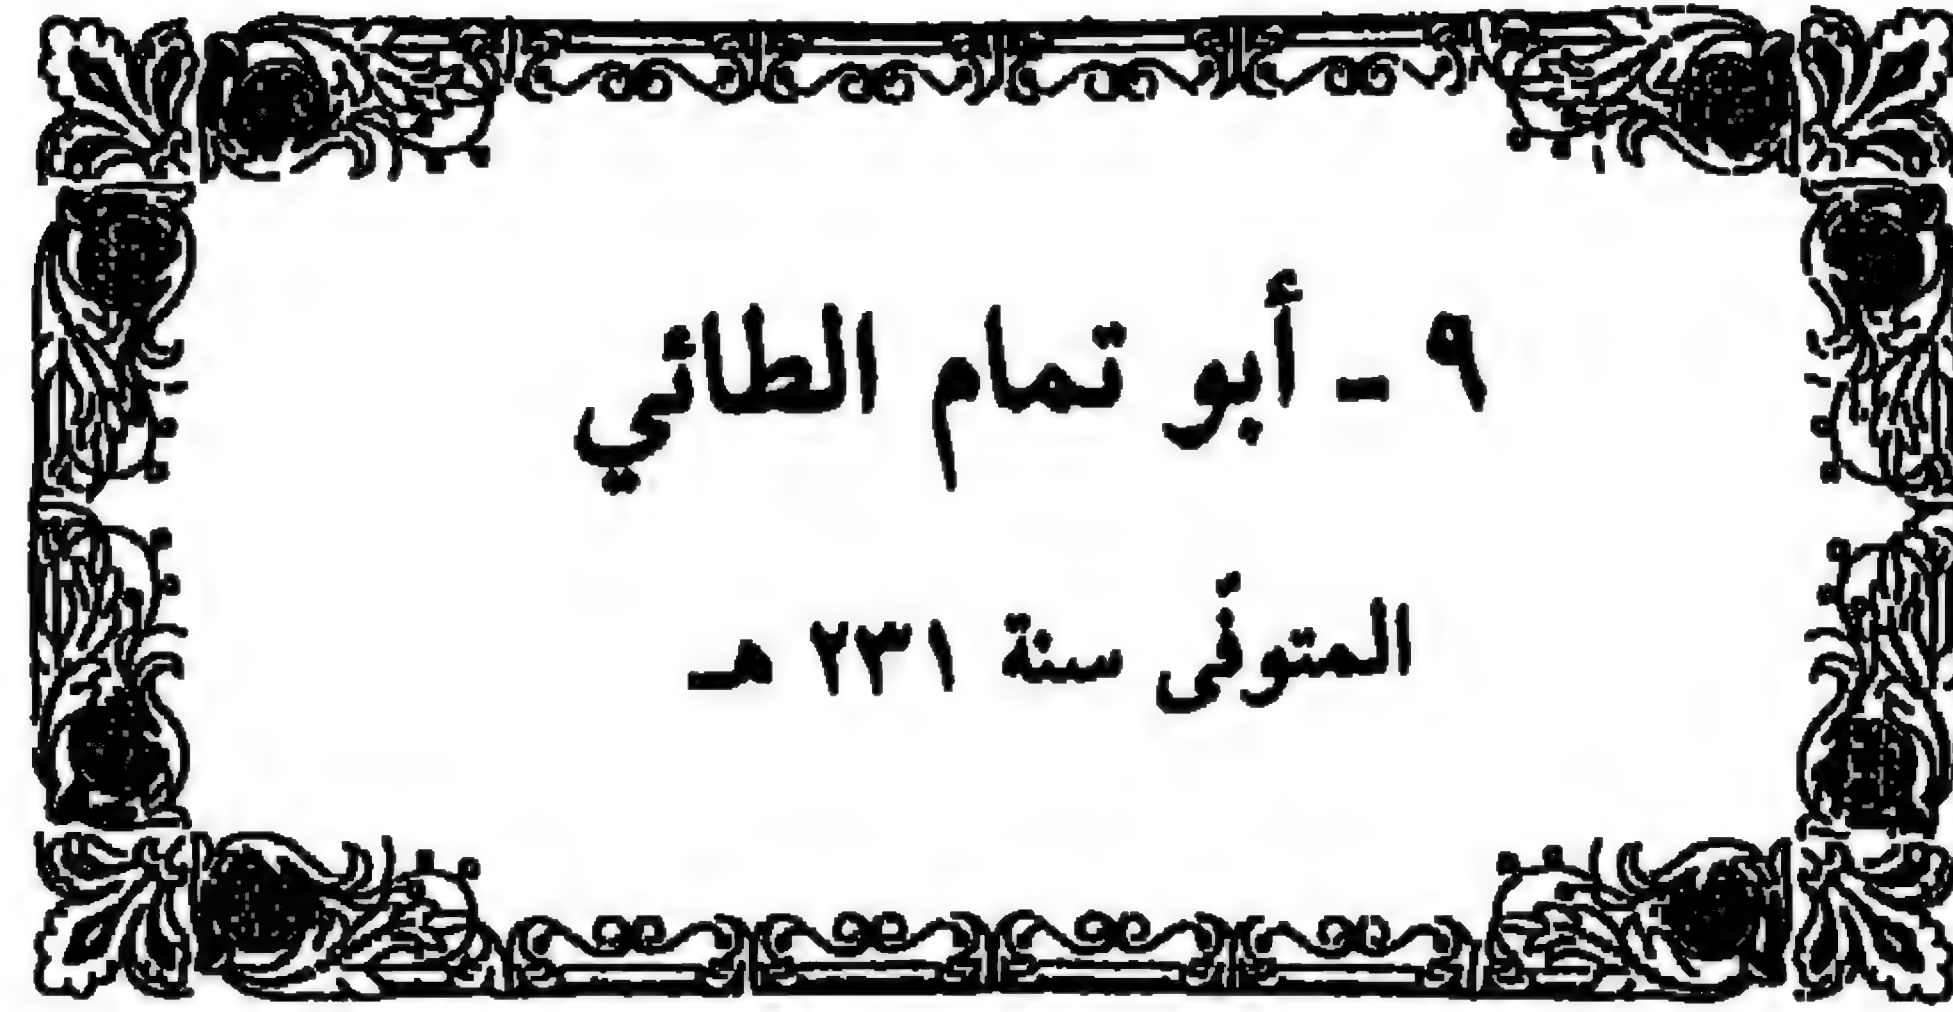 ٩ - أبو تمام الطائي
المتوفَّى سنة ٢٣١ هـ